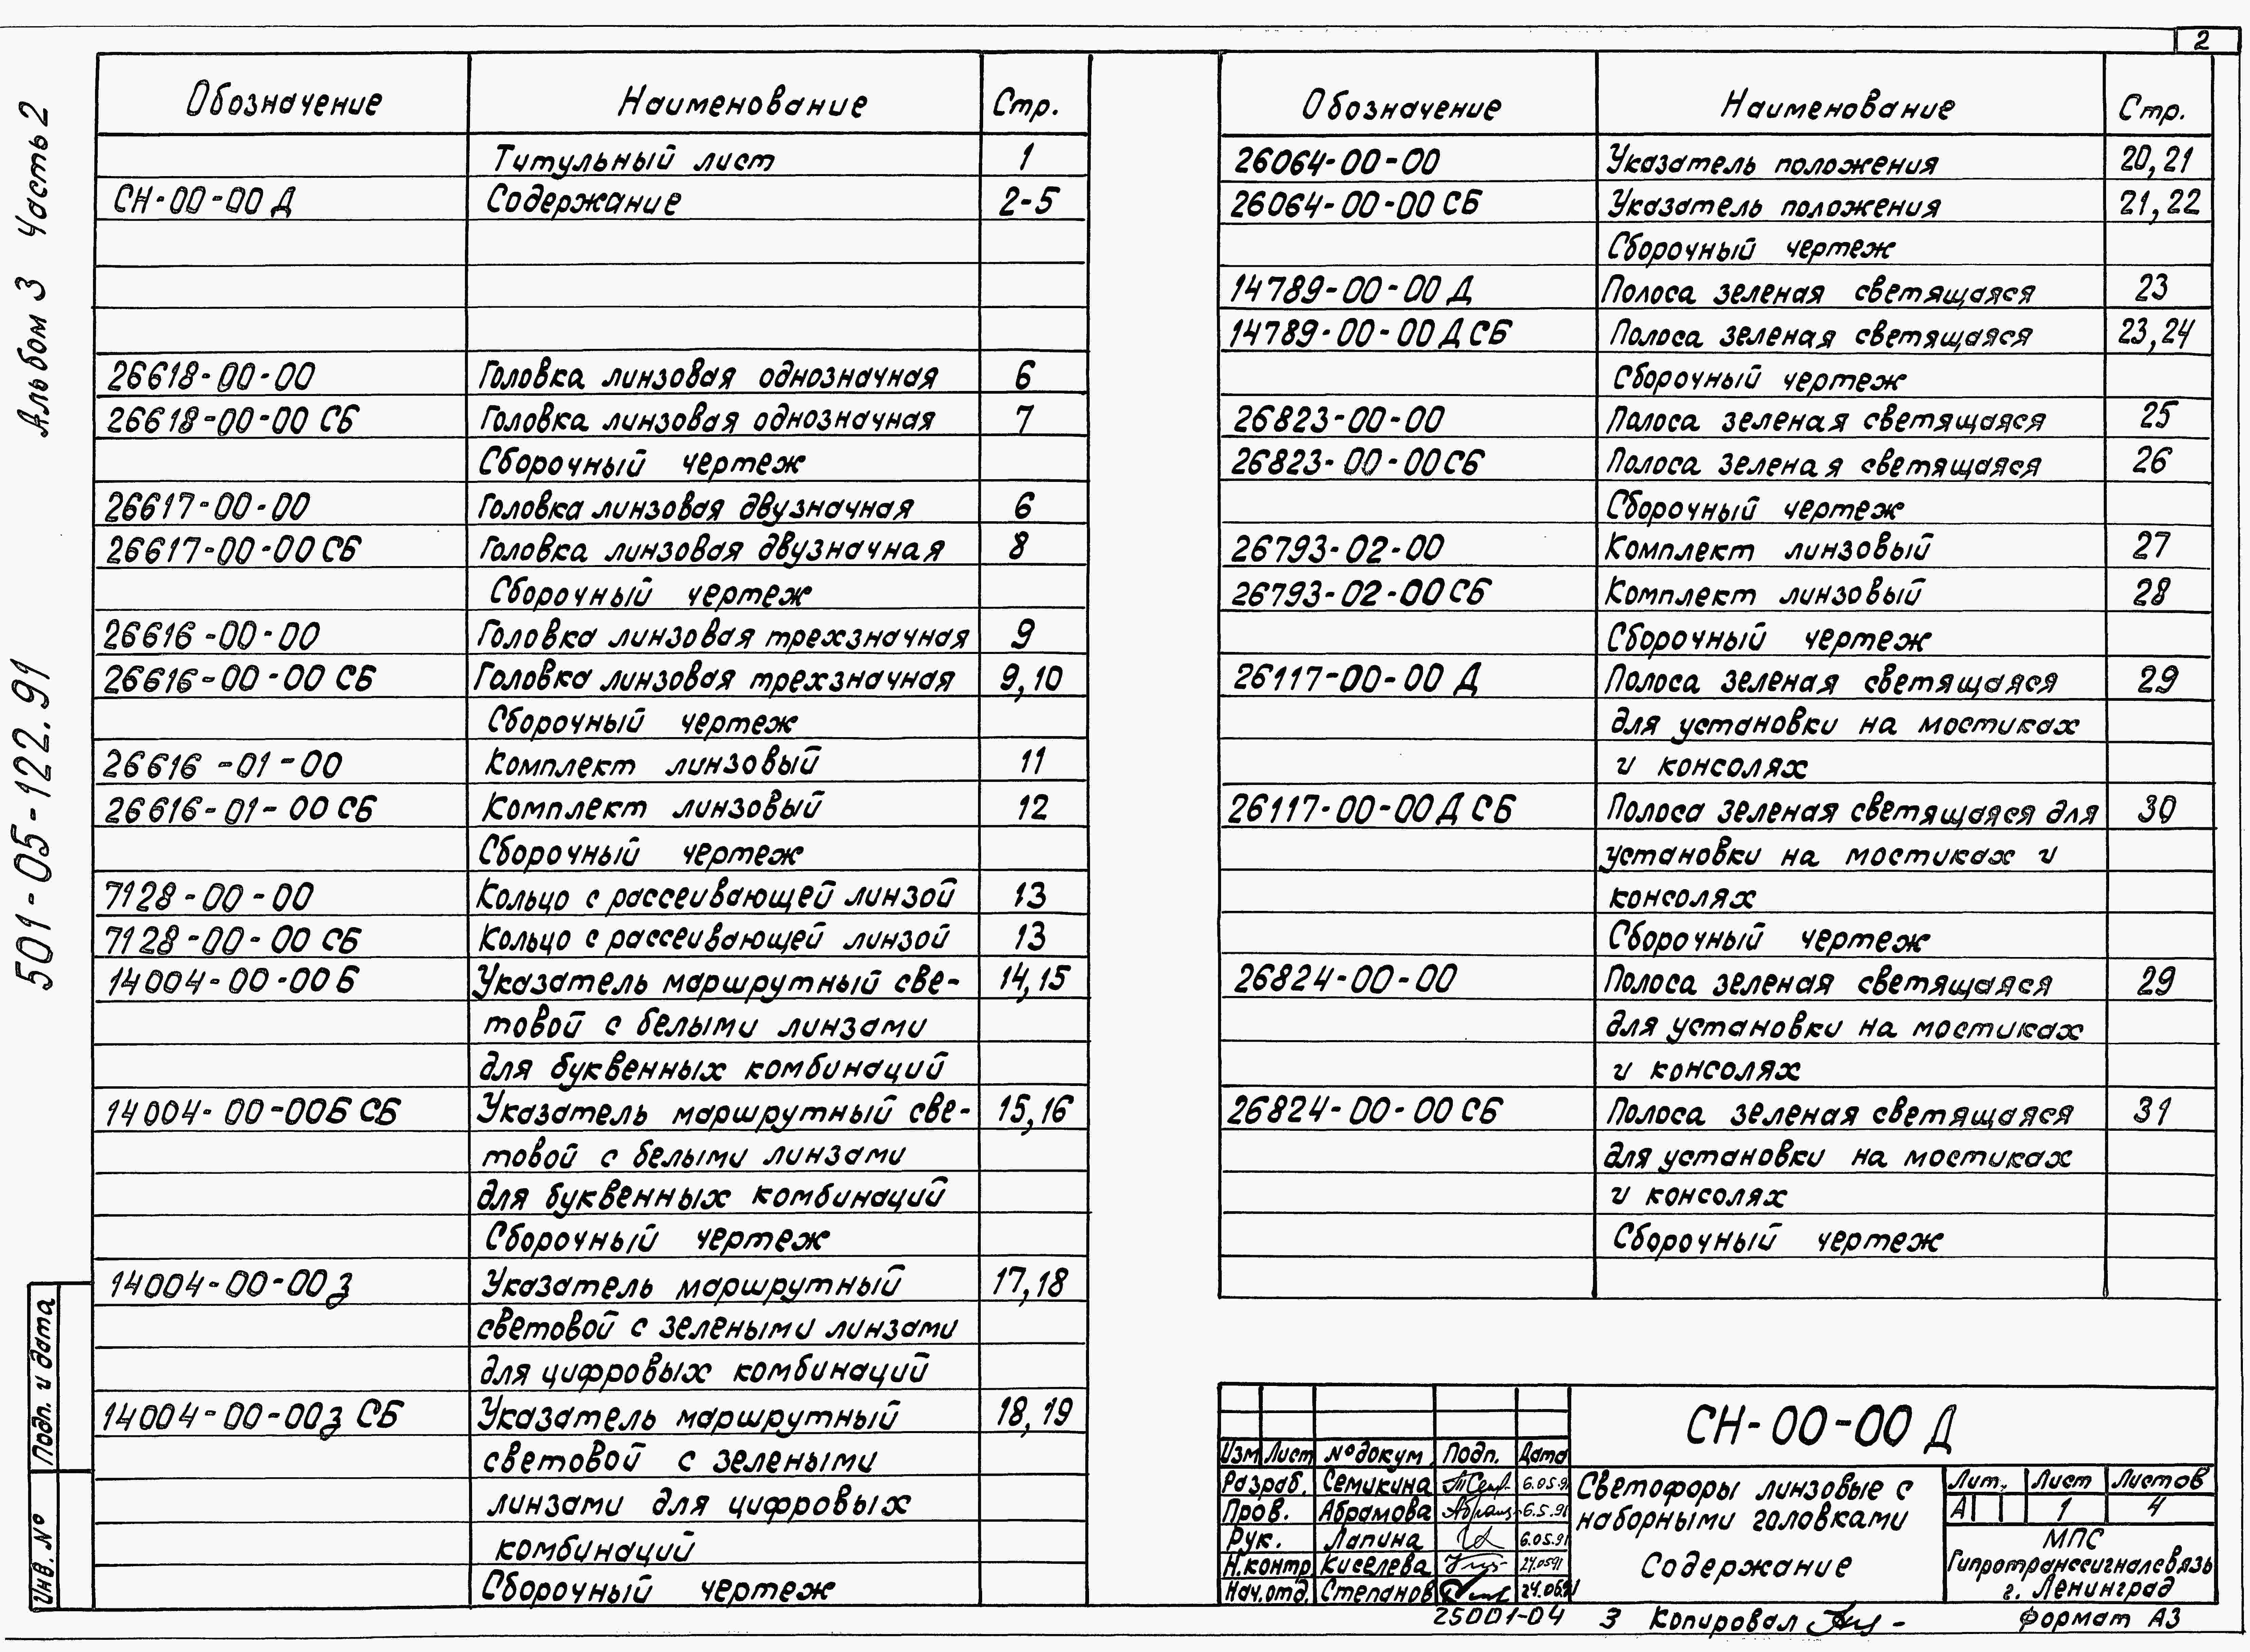 2
Альбом 3 Часть 2
501-05-122.91
Обозначение Наименование Стр.
Титульный лист 1
СН-00-00 Д Содержание 2-5
26618-00-00 Головка линзовая однозначная 6
26618-00-00 СБ Головка линзовая однозначная 7
Сборочный чертеж
26617-00-00 Головка линзовая двузначная 6
26617-00-00 СБ Головка линзовая двузначная 8
Сборочный чертеж
26616-00-00 Головка линзовая трехзначная 9
26616-00-00 СБ Головка линзовая трехзначная 9,10
Сборочный чертеж
26616-01-00 Комплект линзовый 11
26616-01-00 СБ Комплект линзовый 12
Сборочный чертеж
7128-00-00 Кольцо с рассеивающей линзой 13
7128-00-00 СБ Кольцо с рассеивающей линзой 13
14004-00-00 Б Указатель маршрутный све- 14,15
товой с белыми линзами
для буквенных комбинаций
14004-00-00Б СБ Указатель маршрутный све- 15,16
товой с белыми линзами
для буквенных комбинаций
Сборочный чертеж
14004-00-00з Указатель маршрутный 17,18
световой с зелеными линзами
для цифровых комбинаций
14004-00-00з СБ Указатель маршрутный 18,19
световой с зелеными
линзами для цифровых
комбинаций
Сборочный чертеж
Обозначение Наименование Стр.
26064-00-00 Указатель положения 20,21
26064-00-00 СБ Указатель положения 21,22
Сборочный чертеж
14789-00-00 Д Полоса зеленая светящаяся 23
14789-00-00 Д СБ Полоса зеленая светящаяся 23,24
Сборочный чертеж
26823-00-00 Полоса зеленая светящаяся 25
26823-00-00 СБ Полоса зеленая светящаяся 26
Сборочный чертеж
26793-02-00 Комплект линзовый 27
26793-02-00 СБ Комплект линзовый 28
Сборочный чертеж
26117-00-00 Д Полоса зеленая светящаяся 29
для установки на мостиках
и консолях
26117-00-00 Д СБ Полоса зеленая светящаяся для 30
установки на мостиках и
консолях
Сборочный чертеж
26824-00-00 Полоса зеленая светящаяся 29
для установки на мостиках
и консолях
26824-00-00 СБ Полоса зеленая светящаяся 31
для установки на мостиках
и консолях
Сборочный чертеж
Подп. и дата
Инв. №
СН-00-00 Д
Изм Лист № докум. Подп. Дата
Разраб. Семикина 6.05.91
Пров. Абрамова 6.5.91
Рук. Лапина 6.05.91
Н.контр Киселева 24.0591
Нач.отд. Степанов 24.06.91
Светофоры линзовые с
наборными головками
Содержание
Лит. Лист Листов
А 1 4
МПС
Гипротранссигналсвязь
г. Ленинград
25001-04 3 Копировал Формат А3